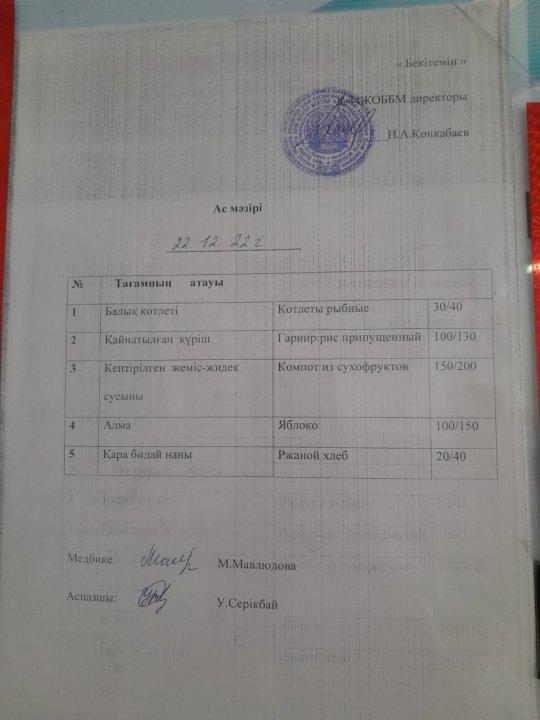 « Бекітемін »
директоры
Н.А.Конкабаев
Ас мәзірі
22. 12. 22 г
№ Тағамның атауы
1 Балық котлеті Котлеты рыбные 30/40
2 Қайнатылған күріш Гарнир:рис припущенный 100/130
3 Кептірілген жеміс-жидек Компот из сухофруктов 150/200
сусыны
4 Алма Яблоко 100/150
5 Қара бидай наны Ржаной хлеб 20/40
Медбике: М.Мавлюдова
Аспазшы: У.Серікбай